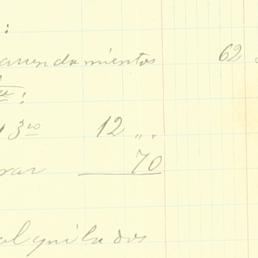 :
arrendamientos 62
:
3.00 12 „
rar 70
alquilados